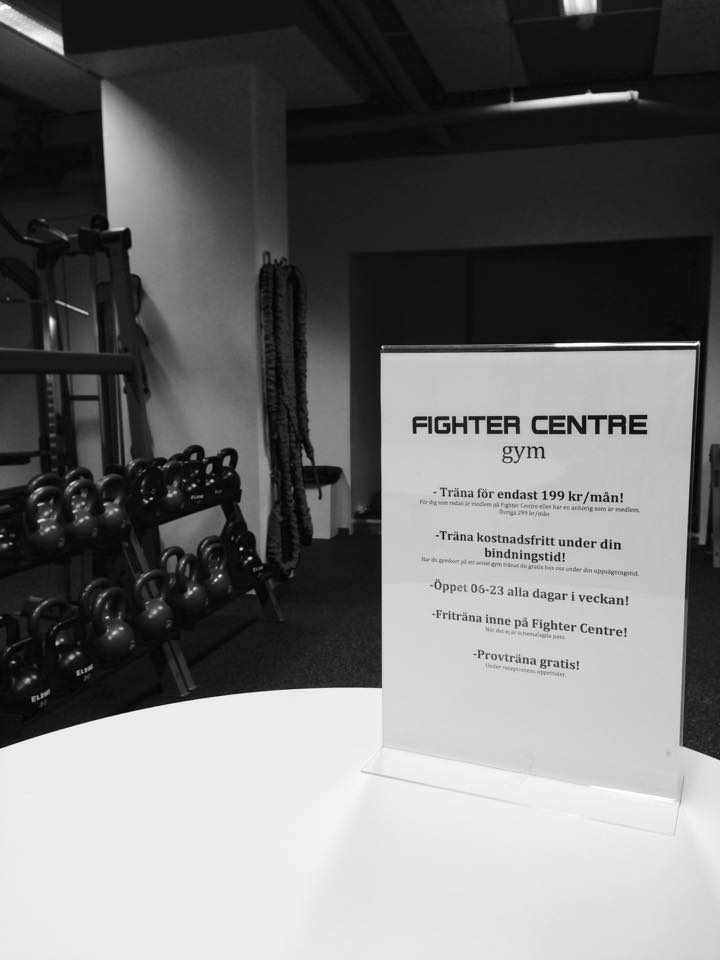 FIGHTER CENTRE
gym
- Träna för endast 199 kr/mån!
För dig som redan är medlem på Fighter Centre eller har en anhörig som är medlem.
Övriga 299 kr/mån
-Träna kostnadsfritt under din
bindningstid!
Har du gymkort på ett annat gym tränar du gratis hos oss under din uppsägningstid.
-Öppet 06-23 alla dagar i veckan!
-Friträna inne på Fighter Centre!
När det ej är schemalagda pass.
-Provträna gratis!
Under receptionens öppettider.
ELEIKO